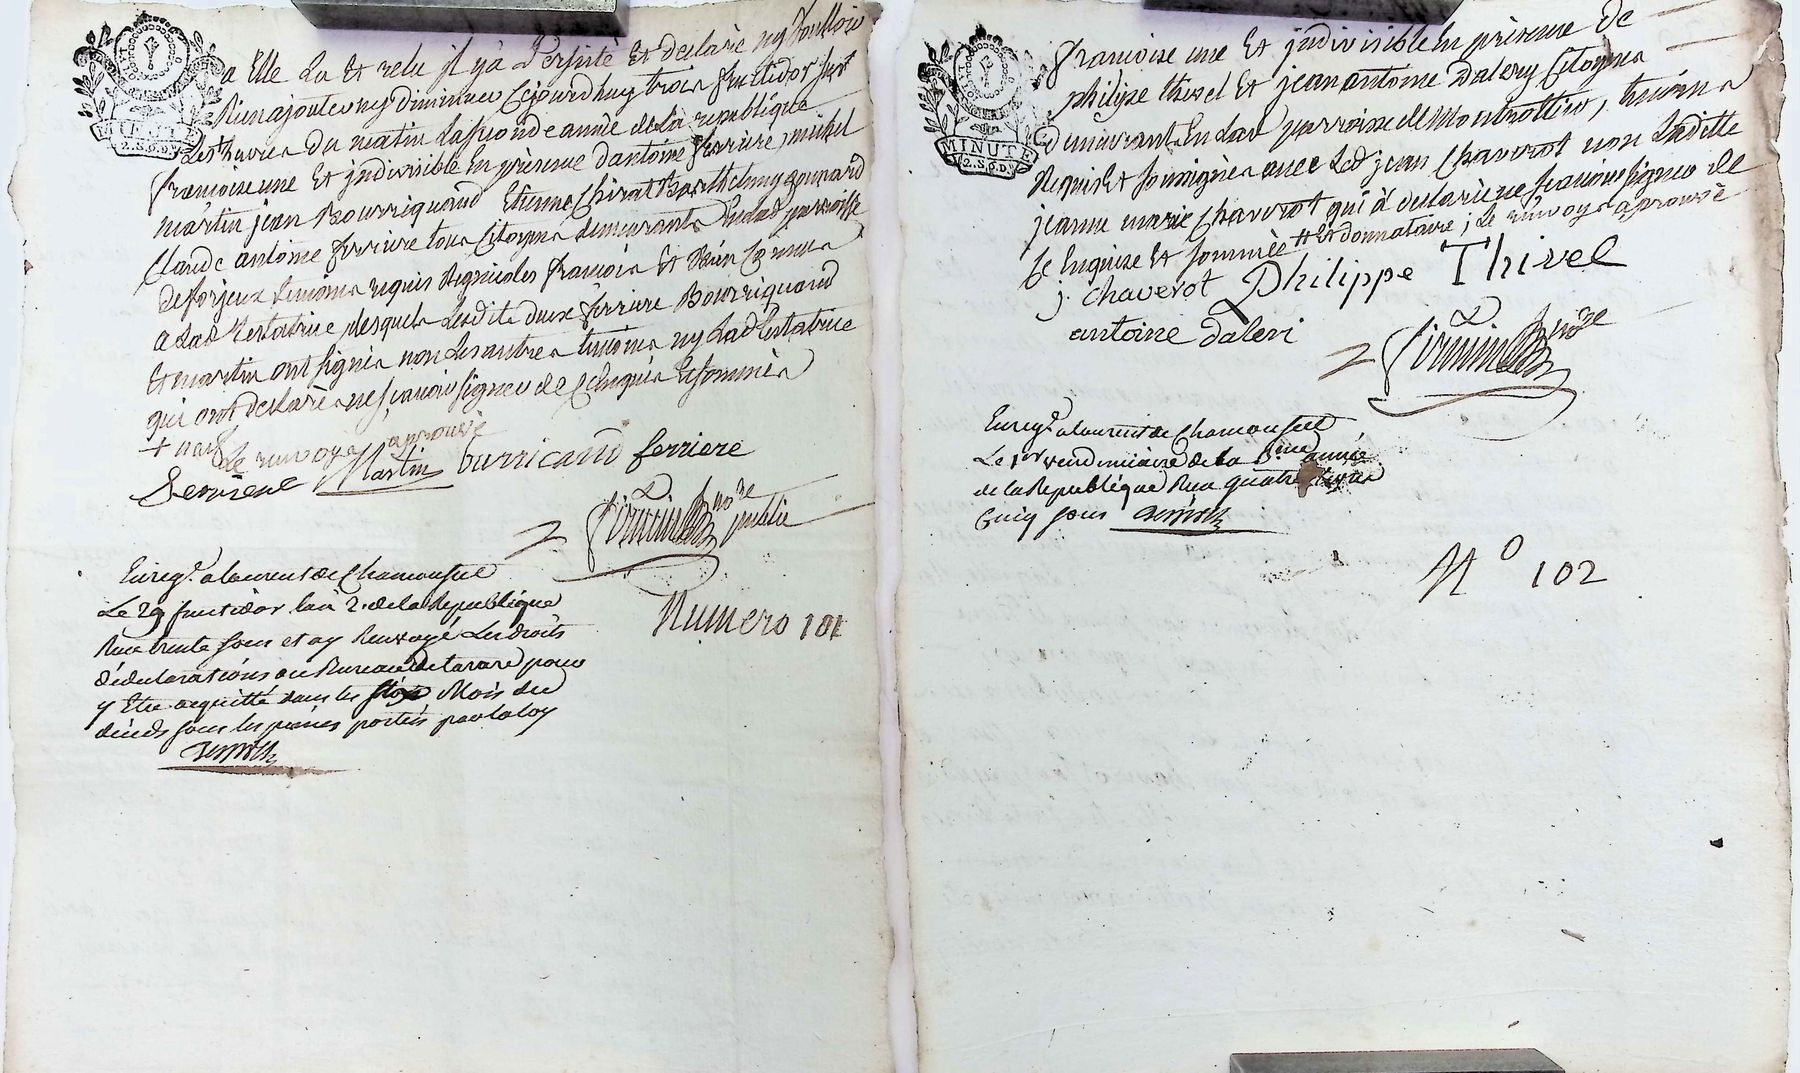 MINUTE
2.S.6.D
a Elle Lu et relu il y a Persisté et declaré ny voulloir
Rien ajouter ny diminuer Cejourdhuy trois fructidor sept
heures du matin La seconde année dela république
francoise une Et jndivisible En présence dantoine ferriere, michel
martin jean Bourriquand Etienne Chirat Barthelemy gonnard
Claude antoine ferriere tous Citoyens demeurants Enlad parroisse
de forjeux temoins requis Regnicoles francois Et Bien Connus
a Lad Testatrice desquels Lesdits deux ferriere Bourriquand
Et martin ont signés non Les autres temoins ny Lad testatrice
qui ont declarés ne scavoir signer de Ce Enquis Et sommés
Le renvoye aprouvé
Martin burricand ferriere
no.re public
Enreg.é a laurent de Chamousset
Le 29 fructidor lan 2. de la Republique
Reçu trente sous et ay Renvoyé Les droits
déclarations au Bureau de tarare pour
y Etre acquitté dans les Mois du
décès sous les peines portées par la loy
Numero 101
MINUTE
2.S.6.D
francoise une Et jndivisible En présence de
philipe thivel Et jean antoine Dalery Citoyens
demeurants En Lad parroisse de Montrottier, temoins
Requis Et soussignés avec Led jean Chaverot non Laditte
jeanne marie Chaverot qui a declaré ne scavoir signer de
Ce Enquise Et sommée # Et donnataire ; Le renvoye aprouvé
j. chaverot Philippe Thivel
antoine daleri
no.re
Enreg.é a laurent de Chamousset
Le 1er vendemiaire de la 3.eme année
de la Republique Reçu quatre livres
Cinq sous
N° 102